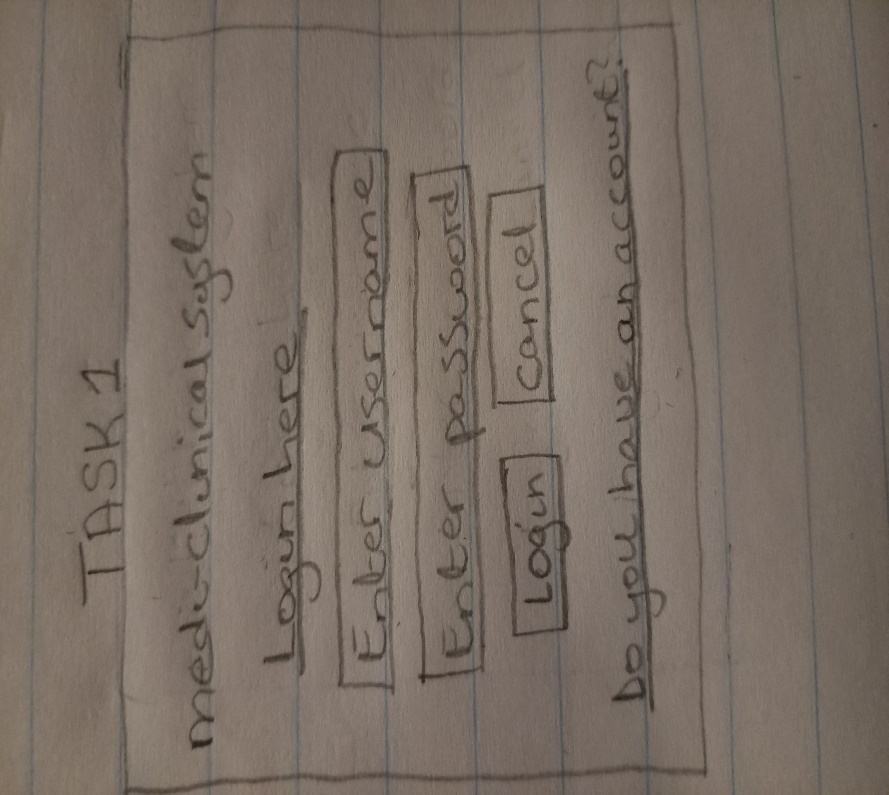 TASK 1
medi-clinical system
Login here
Enter username
Enter password
Login cancel
Do you have an account?